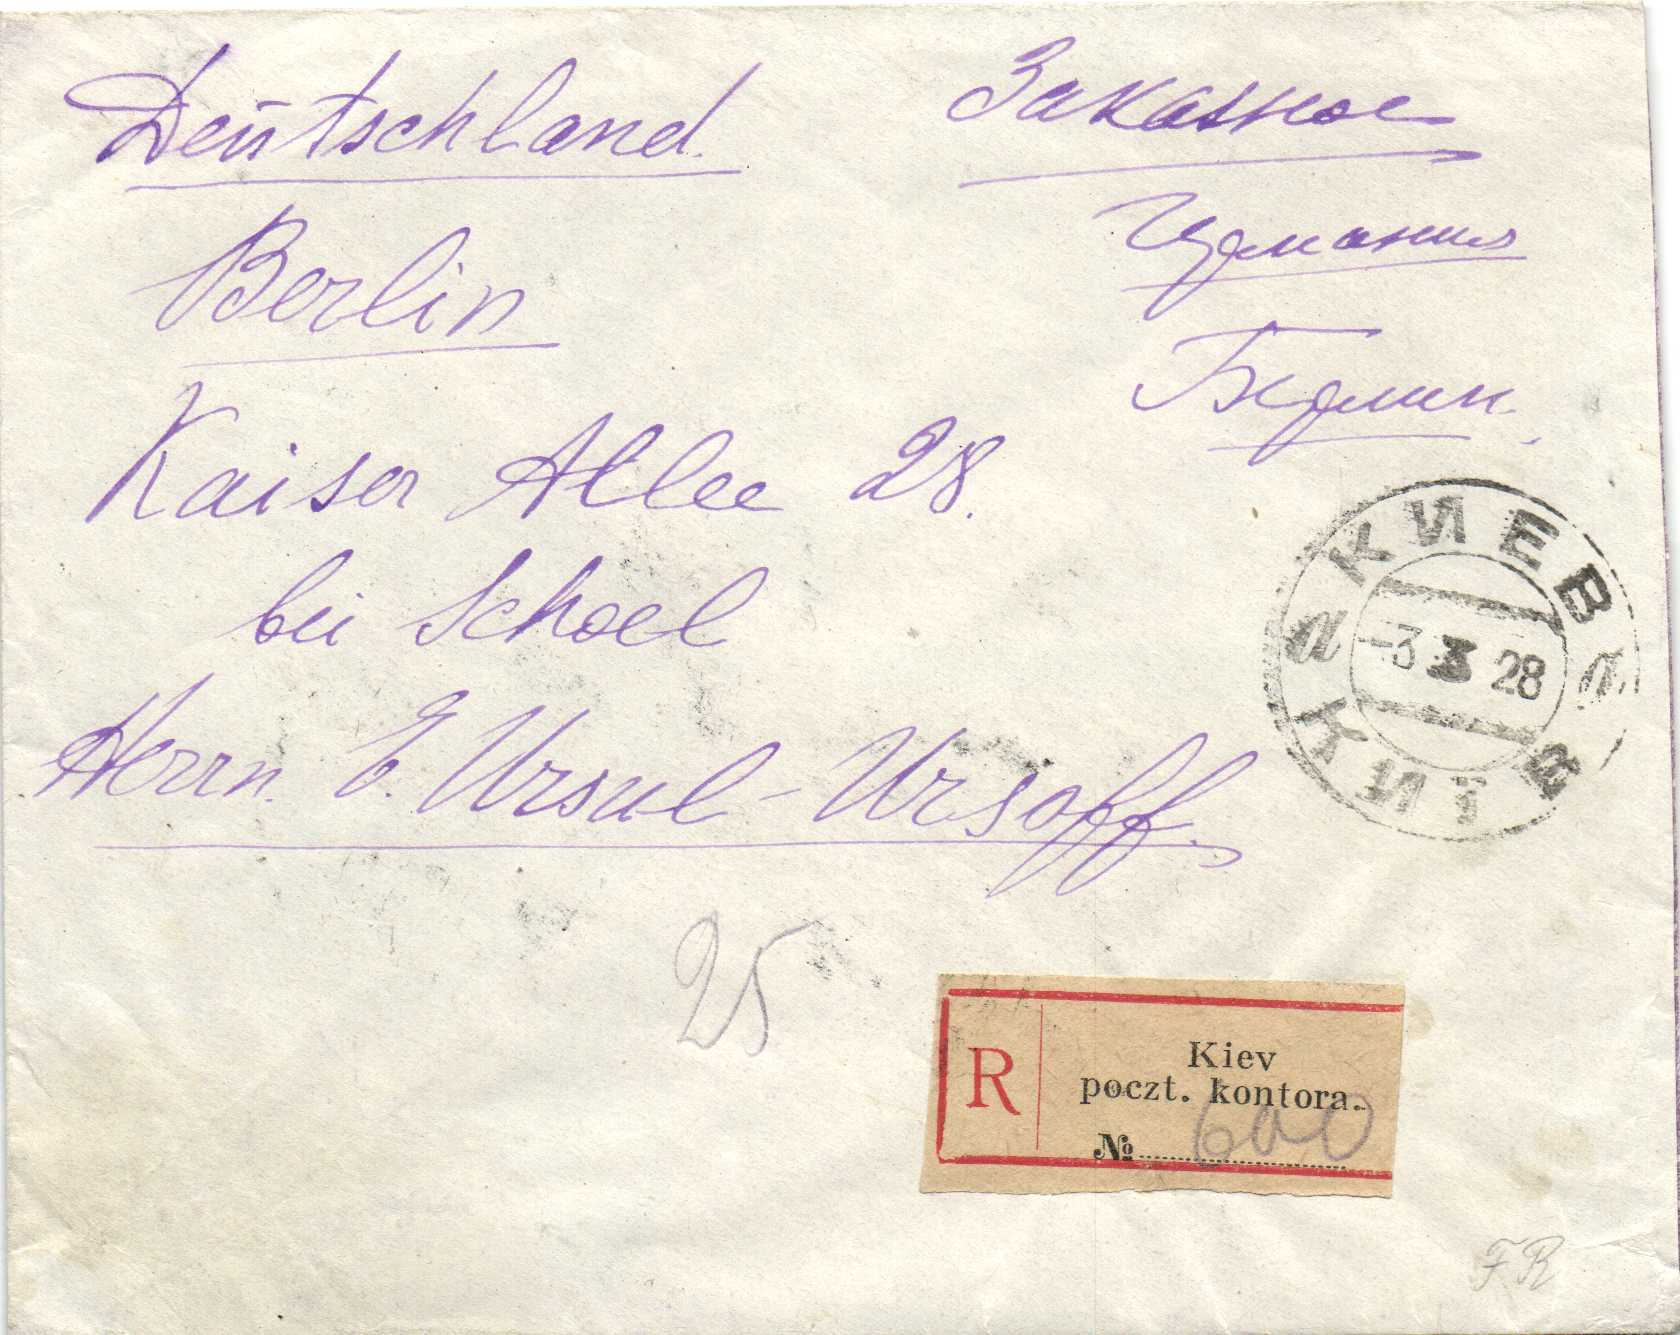 Deutschland
Заказное
Германия
Berlin
Берлин.
Kaiser Allee 28.
bei Schoel
Herrn. E. Ursul-Ursoff.
КИЕВ
а а
-3 3 28
КИЇВ
25
R
Kiev
poczt. kontora.
№ 600
FR